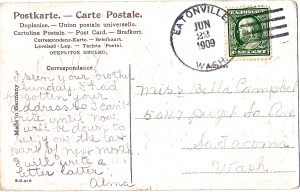 Postkarte. — Carte Postale.
Dopisnice. — Union postale universelle.
Cartolina Postale. — Post Card. — Brefkort.
Correspondenz-Karte. — Briefkaart.
Levelező-Lap. — Tarjeta Postal.
Correspondence
Made in Germany
EATONVILLE
JUN
22
1909
WASH.
I seen your mother
Sunday. I had
your
address so I can't
write until now
will be down to
the
part of next month
I will write a
letter later.
Alma
Miss Bella Campbell
5417 Puget So Ave
So Tacoma
Wash.